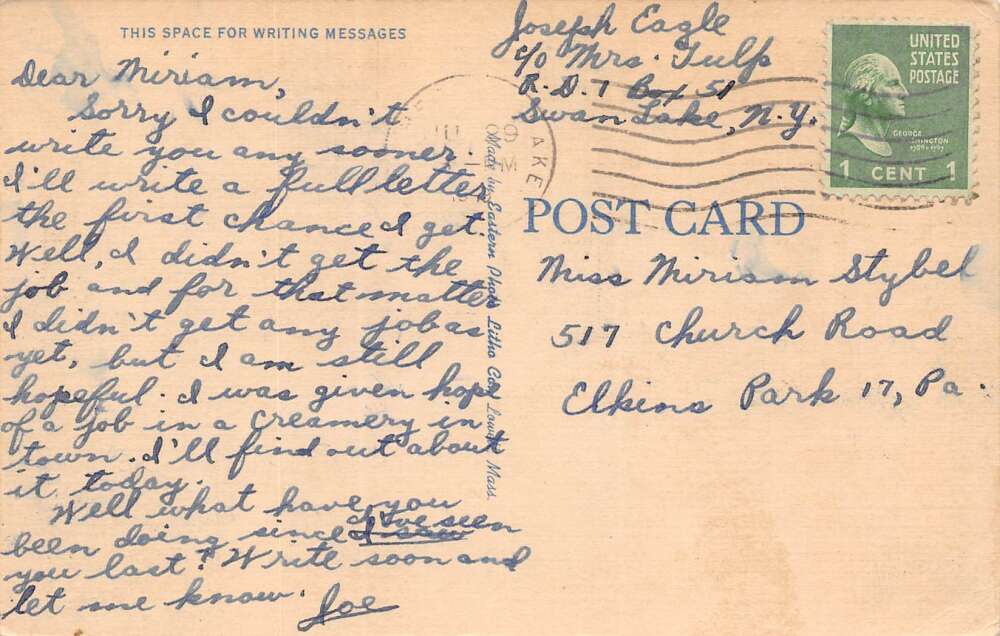 THIS SPACE FOR WRITING MESSAGES
Dear Miriam,
Sorry I couldn't
write you any sooner.
I'll write a full letter
the first chance I get.
Well, I didn't get the
job and for that matter
I didn't get any job as
yet, but I am still
hopeful. I was given hope
of a job in a Creamery in
town. I'll find out about
it today.
Well what have you
been doing since I've seen
I saw
you last? Write soon and
let me know. Joe
Made in Eastern Photo Litho Co., Lowell, Mass.
Joseph Eagle
c/o Mrs. Tulp
R.D. 1 Box 51
Swan Lake, N.Y.
AKE
M
UNITED
STATES
POSTAGE
GEORGE
WASHINGTON
1789-1797
1 CENT 1
POST CARD
Miss Miriam Stybel
517 Church Road
Elkins Park 17, Pa.